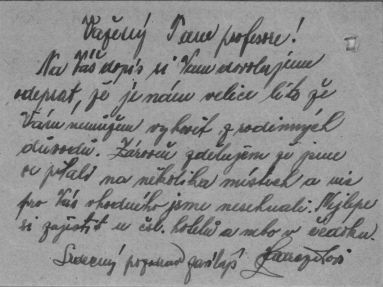 Vážený Pane professore!
Na Váš dopis si Vám dovolujem
odepsat, že je nám velice líto že
Vám nemůžem vyhovit z rodinných
důvodů. Zároveň zdělujem že jsme
se ptali na několika místech a nic
pro Vás vhodného jsme nesehnali. Nejlépe
si zajistit u čsl. hotelů a nebo v čedoku.
Srdečný pozdrav zasílají